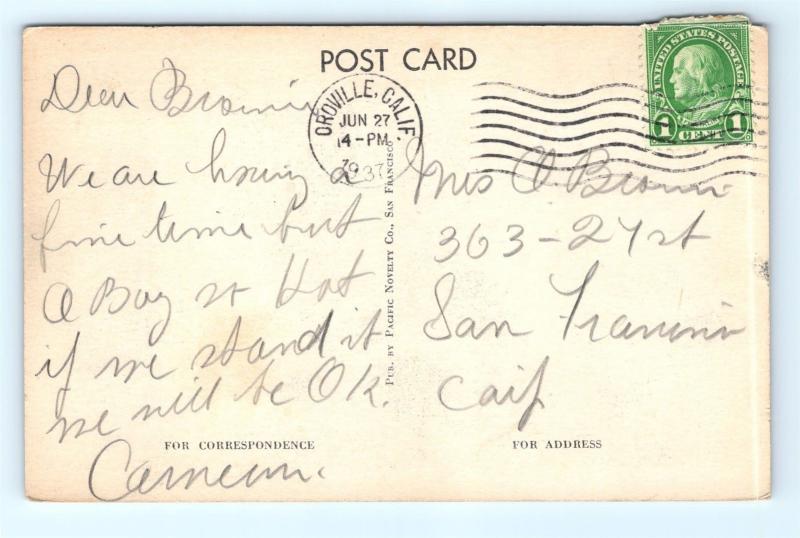 POST CARD
UNITED STATES POSTAGE
1 CENT 1
OROVILLE, CALIF.
JUN 27
4-PM
1937
Dear
We are having a
fine time but
O Boy so Hot
if we stand it
we will be O.K.
PUB. BY PACIFIC NOVELTY CO., SAN FRANCISCO
Mrs O
363-27 st
San Francisco
Calif
FOR CORRESPONDENCE
FOR ADDRESS